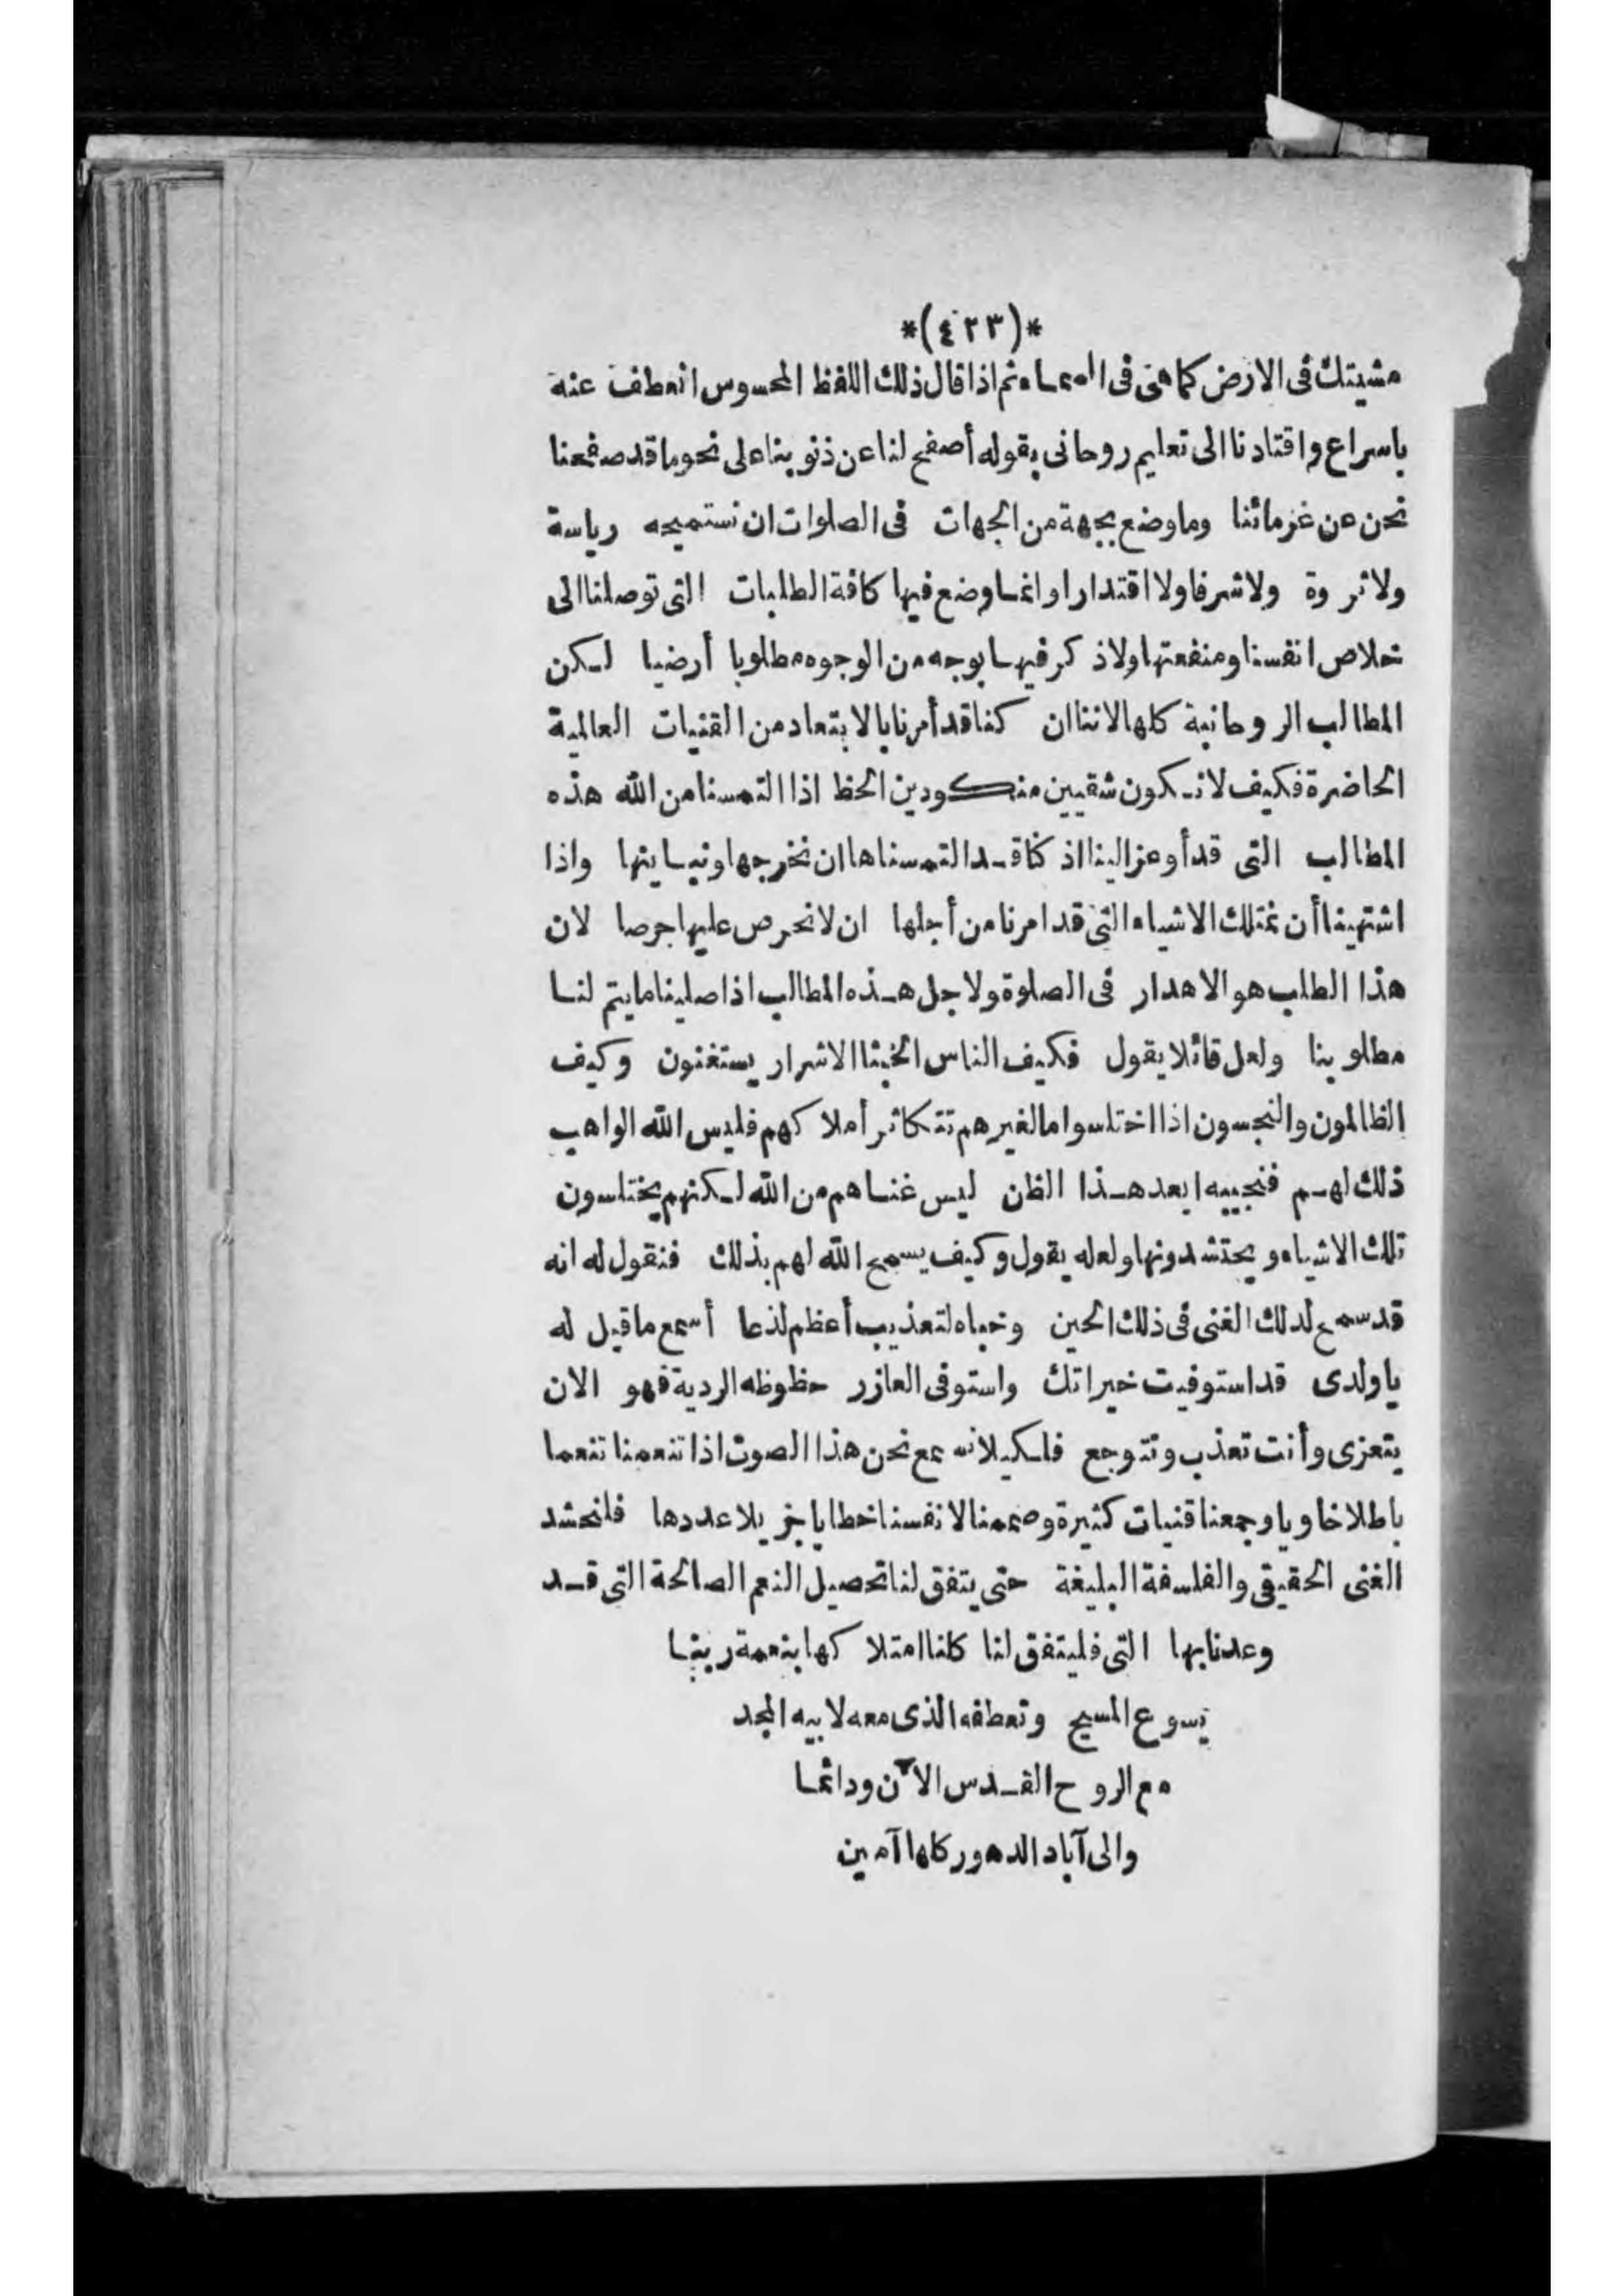 *(٤٢٣)*
مشيتك فى الارض كما هى فى السماء ثم اذا قال ذلك اللفظ المحسوس انعطف عنه
باسراع واقتادنا الى تعليم روحانى بقوله أصفح لنا عن ذنوبنا على نحو ما قد صفحنا
نحن عن غرمائنا وما وضع بجهة من الجهات فى الصلوات ان نستميحه رياسة
ولا ثروة ولا شرفا ولا اقتدارا وانما وضع فيها كافة الطلبات التى توصلنا الى
خلاص انفسنا ومنفعتها ولا ذكر فيها بوجه من الوجوه مطلوبا أرضيا لكن
المطالب الروحانية كلها لاننا ان كنا قد أمرنا بالابتعاد من القنيات العالمية
الحاضرة فكيف لا نكون شقيين منكودين الحظ اذا التمسنا من الله هذه
المطالب التى قد أوعز الينا اذ كنا قد التمسناها ان نخرجها ونباينها واذا
اشتهينا أن نمتلك الاشياء التى قد امرنا من أجلها ان لا نحرص عليها حرصا لان
هذا الطلب هو الاهدار فى الصلوة ولاجل هذه المطالب اذا صلينا ما يتم لنا
مطلوبنا ولعل قائلا يقول فكيف الناس الخبثا الاشرار يستغنون وكيف
الظالمون والنجسون اذا اختلسوا ما لغيرهم تتكاثر أملاكهم فليس الله الواهب
ذلك لهم فنجيبه ابعد هذا الظن ليس غناهم من الله لكنهم يختلسون
تلك الاشياء ويحتشدونها ولعله يقول وكيف يسمح الله لهم بذلك فنقول له انه
قد سمح لذلك الغنى فى ذلك الحين وخباه لتعذيب أعظم لذعا أسمع ما قيل له
يا ولدى قد استوفيت خيراتك واستوفى العازر حظوظه الردية فهو الان
يتعزى وأنت تعذب وتتوجع فلكيلا نسمع نحن هذا الصوت اذا تنعمنا تنعما
باطلا خاويا وجمعنا قنيات كثيرة وضممنا لانفسنا خطايا جزيلا عددها فلنحشد
الغنى الحقيقى والفلسفة البليغة حتى يتفق لنا تحصيل النعم الصالحة التى قد
وعدنا بها التى فليتفق لنا كلنا امتلاكها بنعمة ربنا
يسوع المسيح وتعطفه الذى معه لابيه المجد
مع الروح القدس الآن ودائما
والى آباد الدهور كلها آمين